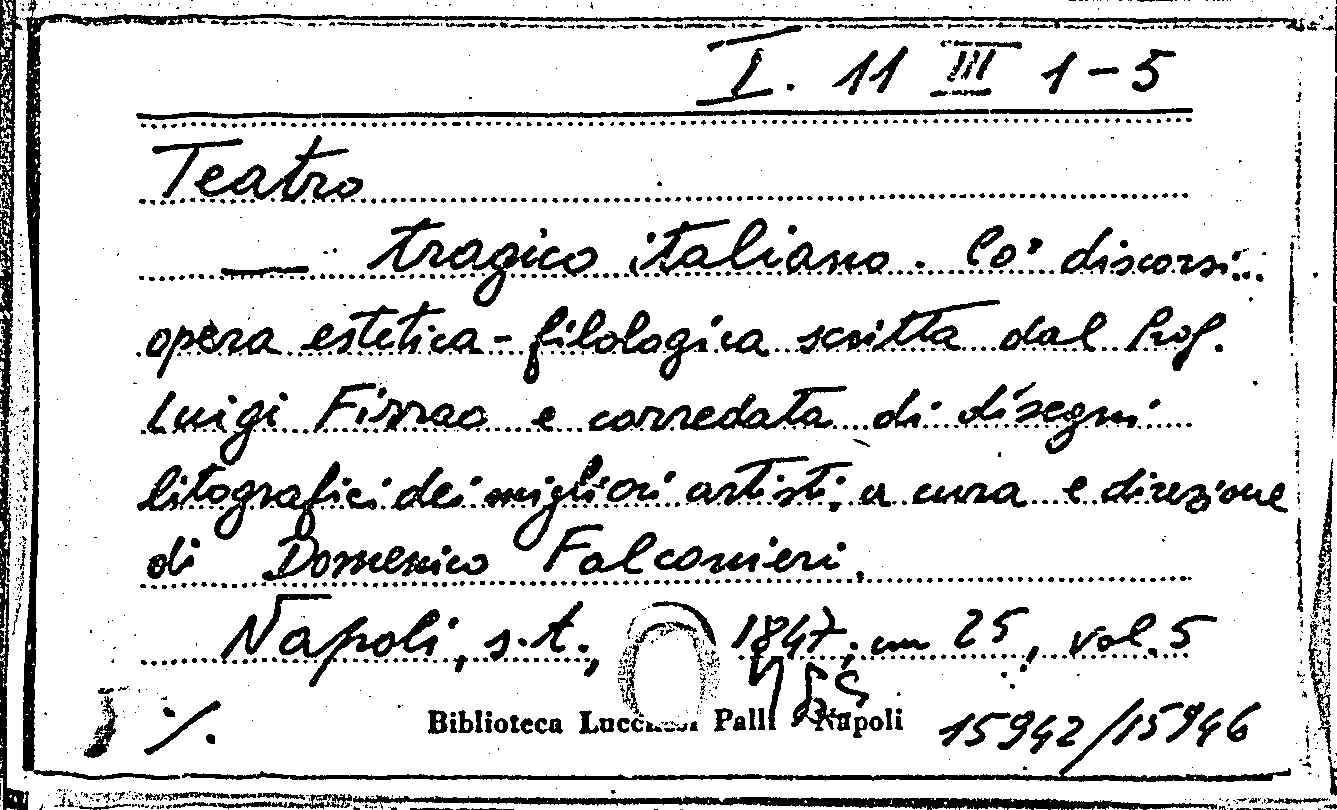 I. 11 III 1-5
Teatro
— tragico italiano. Co' discorsi...
opera estetica-filologica scritta dal Prof.
Luigi Firrao e corredata di disegni
litografici dei migliori artisti, a cura e direzione
di Domenico Falconieri.
Napoli, s.t., 1847, cm 25, vol. 5
Biblioteca Lucchesi Palli Napoli
·/. 15942/15946